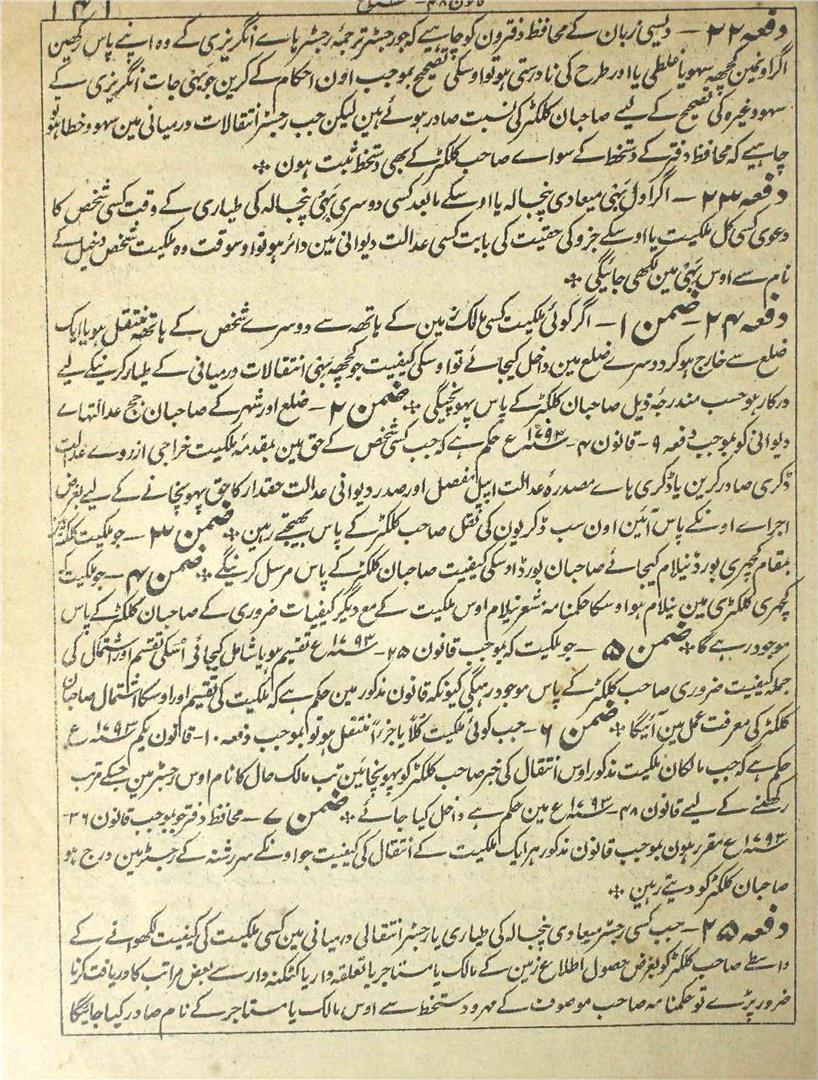 دفعہ ۲۲ – دیسی زبان کے محافظ دفترون کو چاہیے کہ جو رجسٹر ترجمۂ رجسٹر ہاے انگریزی کے وہ اپنے پاس رکھین
اگر اونمین کچھہ سہو یا غلطی یا اور طرح کی نادرستی ہو تو اوسکی تصحیح بموجب اون احکام کے کرین جو بہی جات انگریزی کے
سہو وغیرہ کی تصحیح کے لیے صاحبان کلکٹر کی نسبت صادر ہوئے ہین لیکن جب رجسٹر انتقالات درمیانی مین سہو و خطا ہو تو
چاہیے کہ محافظ دفتر کے دستخط کے سواے صاحب کلکٹر کے بھی دستخط ثبت ہون ٭
دفعہ ۲۳ – اگر اول بہی میعادی پنجسالہ یا اوسکے مابعد کسی دوسری بہی پنجسالہ کی طیاری کے وقت کسی شخص کا
دعوی کسی کل ملکیت یا اوسکے جزو کی حقیت کی بابت کسی عدالت دیوانی مین دائر ہو تو اوسوقت وہ ملکیت شخص دخیل کے
نام سے اوس بہی مین لکھی جائیگی ٭
دفعہ ۲۴ – ضمن ۱ – اگر کوئی ملکیت کسی مالک زمین کے ہاتھہ سے دوسرے شخص کے ہاتھہ منتقل ہو یا ایک
ضلع سے خارج ہو کر دوسرے ضلع مین داخل کیجائے تو اوسکی کیفیت جو کچھہ بہی انتقالات درمیانی کے طیار کرنیکے لیے
درکار ہو حسب مندرجہ ذیل صاحبان کلکٹر کے پاس پہونچیگی ٭ ضمن ۲ – ضلع اور شہر کے صاحبان جج عدالتہاے
دیوانی کو بموجب دفعہ ۹ – قانون ۴ – سنہ ۱۷۹۳ ع حکم ہے کہ جب کسی شخص کے حق مین بمقدمہ ملکیت خراجی ازروے عدالت
ڈکری صادر کرین یا ڈکری ہاے مصدرہ عدالت اپیل مفصل اور صدر دیوانی عدالت حقدار کا حق پہونچانے کے لیے بغرض
اجراے اونکے پاس آئین اون سب ڈکریون کی نقل صاحب کلکٹر کے پاس بھیجتے رہین ٭ ضمن ۳ – جو ملکیت کلکتہ
بمقام کچہری بورڈ نیلام کیجائے صاحبان بورڈ اوسکی کیفیت صاحبان کلکٹر کے پاس مرسل کرینگے ٭ ضمن ۴ – جو ملکیت
کچہری کلکٹری مین نیلام ہو اوسکا حکمنامہ مشعر نیلام اوس ملکیت کے مع دیگر کیفیات ضروری کے صاحبان کلکٹر کے پاس
موجود رہے گا ٭ ضمن ۵ – جو ملکیت کہ بموجب قانون ۲۵ – سنہ ۱۷۹۳ ع تقسیم ہو یا شامل کیجائی اسکی تقسیم اور اشتمال کی
جملہ کیفیت ضروری صاحب کلکٹر کے پاس موجود رہیگی کیونکہ قانون مذکور مین حکم ہے کہ ملکیت کی تقسیم اور اوسکا اشتمال صاحبان
کلکٹر کی معرفت عمل مین آئیگا ٭ ضمن ۶ – جب کوئی ملکیت کلاً یا جزءاً منتقل ہو تو بموجب دفعہ ۱۰ – قانون یکم سنہ ۱۷۹۳ ع
حکم ہے کہ جب مالکان ملکیت مذکور اوس انتقال کی خبر صاحب کلکٹر کو پہونچائین تب مالک حال کا نام اوس رجسٹر مین جسکے مرتب
رکھنے کے لیے قانون ۴۸ – سنہ ۱۷۹۳ ع مین حکم ہے داخل کیا جائے ٭ ضمن ۷ – محافظ دفتر جو بموجب قانون ۳۶ –
سنہ ۱۷۹۳ ع مقرر ہون بموجب قانون مذکور ہر ایک ملکیت کے انتقال کی کیفیت جو اونکے سررشتہ کے رجسٹر مین درج ہو
صاحبان کلکٹر کو دیتے رہین ٭
دفعہ ۲۵ – جب کسی رجسٹر میعادی پنجسالہ کی طیاری یا رجسٹر انتقالی درمیانی مین کسی ملکیت کی کیفیت لکھوانے کے
واسطے صاحب کلکٹر کو بغرض حصول اطلاع زمین کے مالک یا مستاجر یا تعلقہ دار یا کٹکنہ دار سے بعض مراتب کا دریافت کرنا
ضرور پڑے تو حکمنامہ صاحب موصوف کے مہر و دستخط سے اوس مالک یا مستاجر کے نام صادر کیا جائیگا